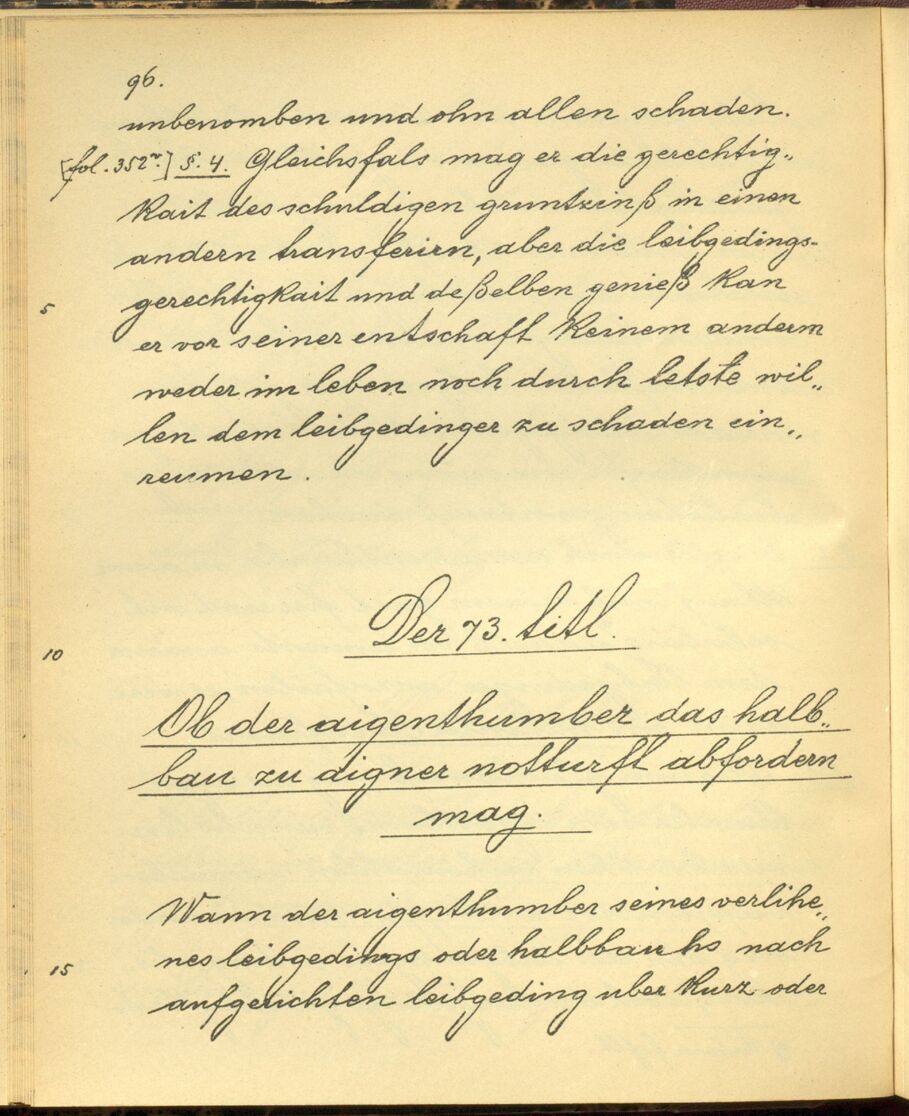 96.
unbenomben und ohn allen schaden.
[fol. 352r.] §. 4. Gleichsfals mag er die gerechtig„
kait des schuldigen gruntzinß in einen
andern transferirn, aber die leibgedings-
5 gerechtigkait und deßelben genieß kan
er vor seiner entschaft keinem anderm
weder im leben noch durch letste wil„
len dem leibgedinger zu schaden ein„
reumen.
10 Der 73. titl.
Ob der aigenthumber das halb„
bau zu aigner notturft abfordern
mag.
Wann der aigenthumber seines verlihe„
15 nes leibgedings oder halbbauchs nach
aufgerichten leibgeding uber kurz oder